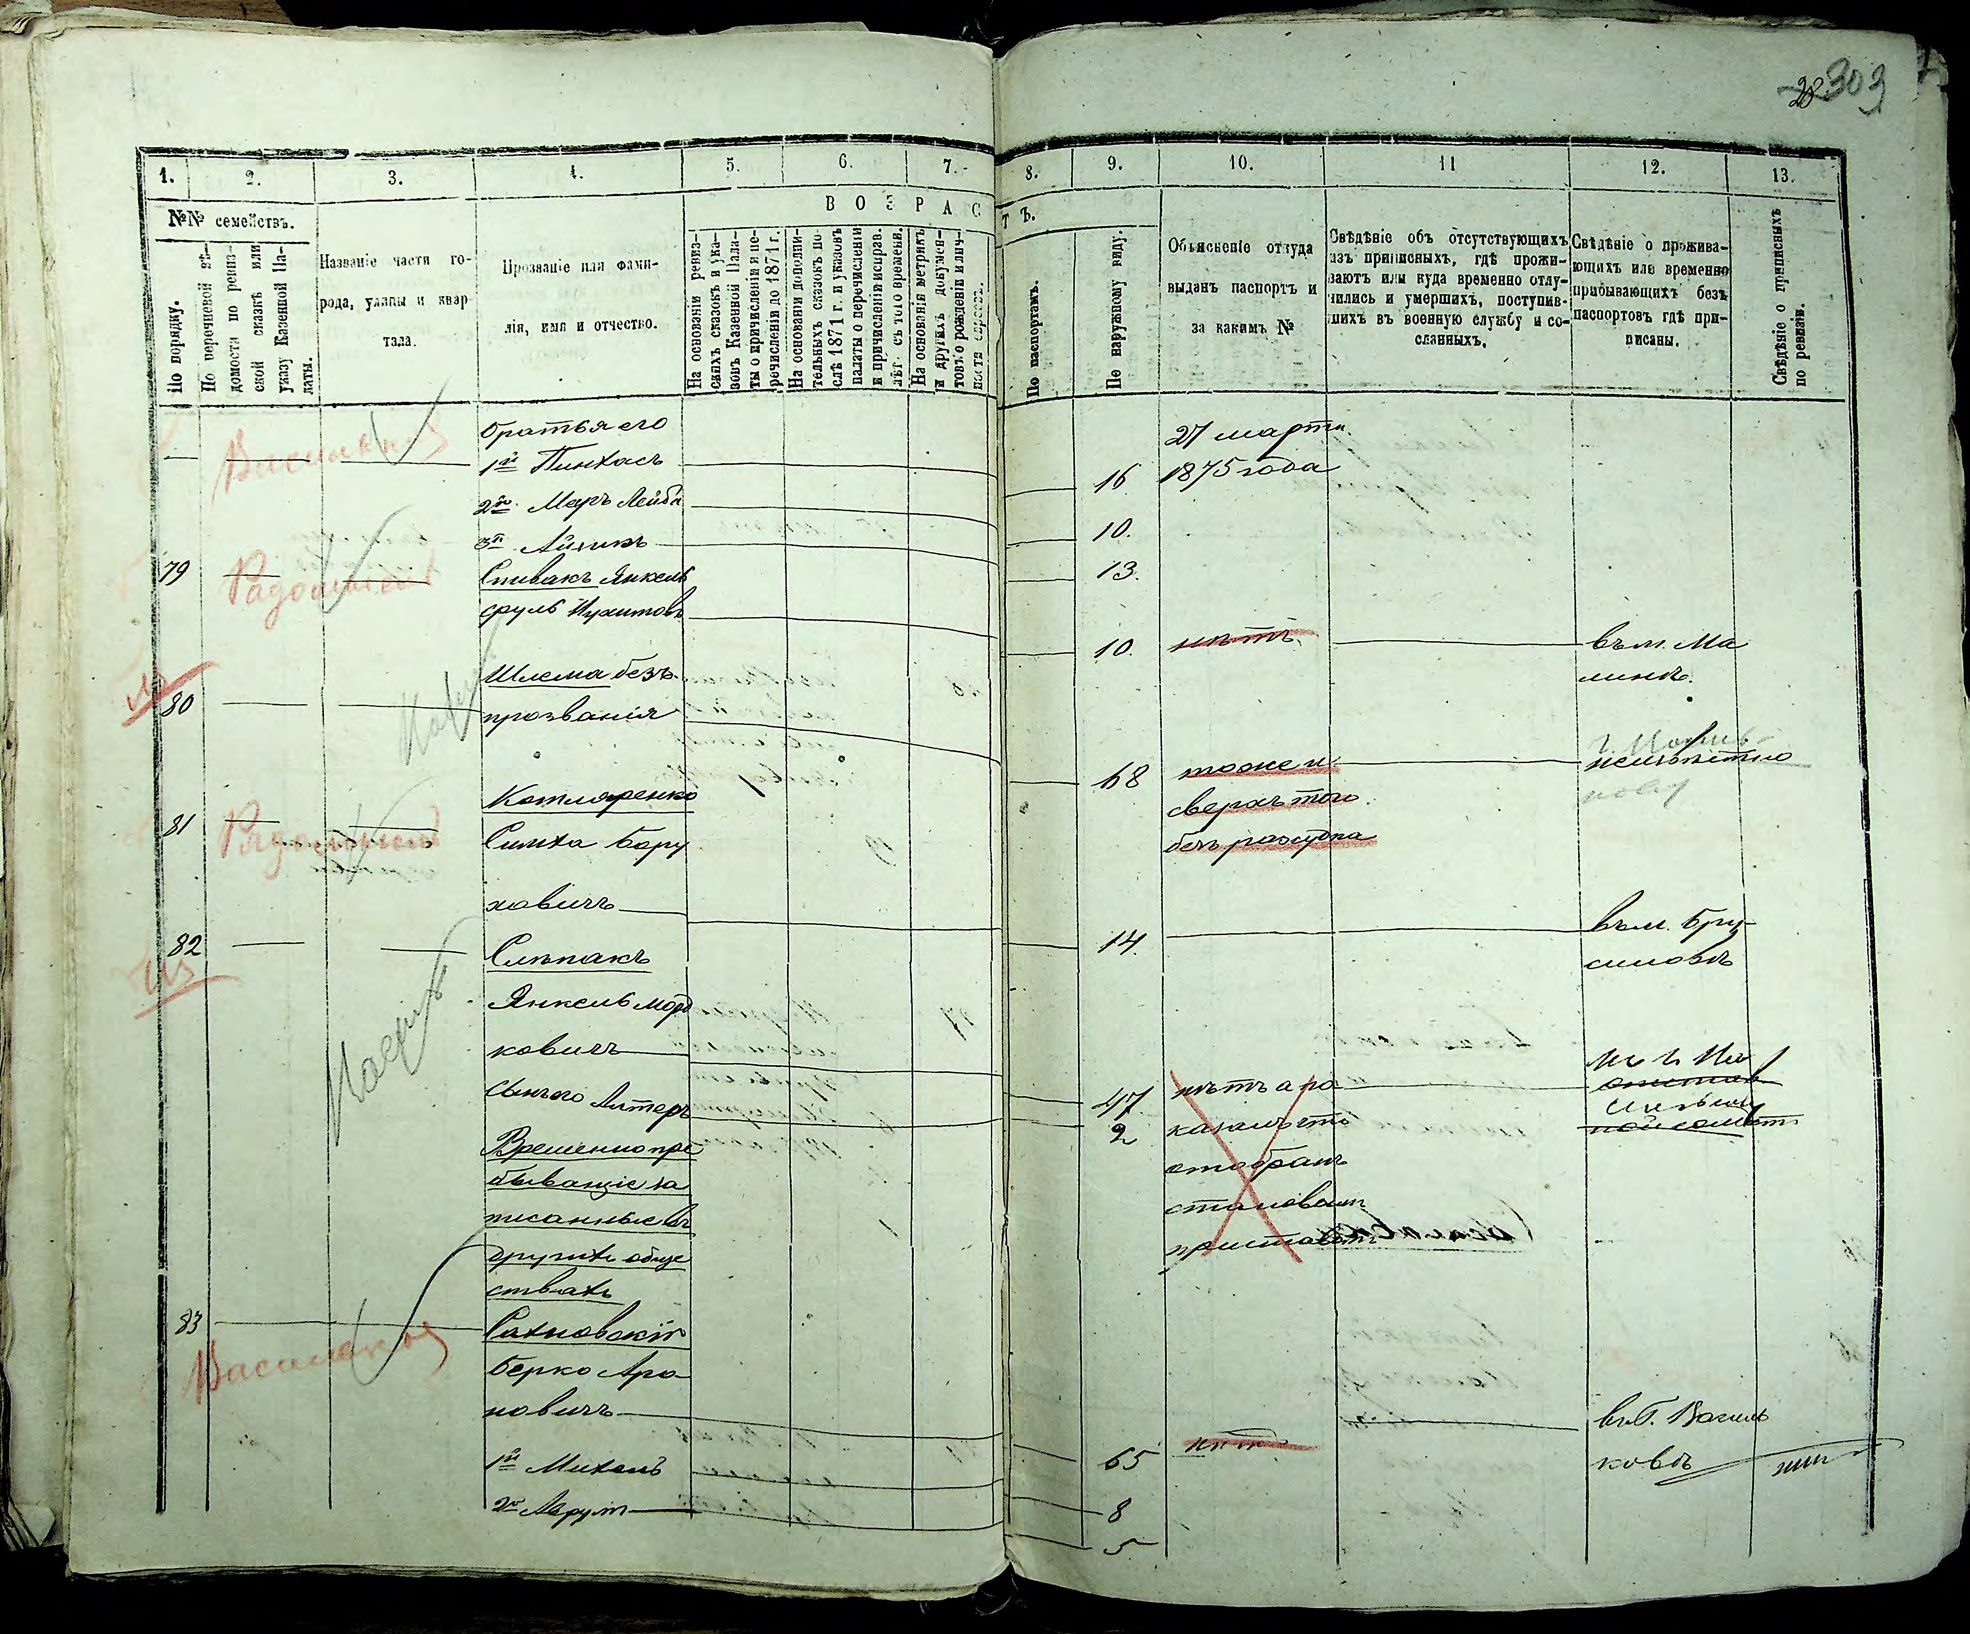 303
1.
2.
3.
4.
5.
6.
7.
8.
9.
10.
11
12.
13.
№№ семействъ.
По порядку.
По перечневой вѣ-
домости по ревиз-
ской сказкѣ или
указу Казенной Па-
латы.
Названіе части го-
рода, улицы и квар
тала.
Прозваніе или фами-
лія, имя и отчество.
ВОЗРАС
ТЪ.
На основаніи ревиз-
скихъ сказокъ и ука-
зовъ Казенной Пала-
ты о причисленіи и пе-
речисленіи до 1871 г.
На основаніи дополни-
тельныхъ сказокъ по-
слѣ 1871 г. и указовъ
палаты о перечисленіи
и причисленіи исправ.
лѣт. съ того времени.
На основаніи метрикъ
и другихъ докумен-
товъ о рожденіи и лич-
По паспортамъ.
По наружному виду.
Объясненіе откуда
выданъ паспортъ и
за какимъ №
Свѣдѣніе объ отсутствующихъ
изъ приписныхъ, гдѣ прожи-
ваютъ или куда временно отлу-
чились и умершихъ, поступив-
шихъ въ военную службу и со-
сланныхъ.
Свѣдѣніе о прожива-
ющихъ или временно
прибывающихъ безъ
паспортовъ гдѣ при-
писаны.
Свѣдѣніе о приписныхъ
по ревизіи.
братья его
1й Пинхасъ
16
27 марта
1875 года
2й Меръ Лейба
10.
3й Айзикъ
13.
79
Спивакъ Янкель
сруль
10.
нѣтъ
въ м. Ма
линѣ.
80
Шлема безъ
прозванія
68
тоже и
сверхъ того
безъ разсудка
неизвѣстно
81
Котляренко
Симха Бору
ховичъ
14.
въ м. Бру
силовѣ
82
Слѣпакъ
Янкель Мор
ковичъ
47
нѣтъ а по
казалъ что
отобранъ
становымъ
приставомъ
сынъ его Алтеръ
2
Временно пре
бывающіе за
писанные въ
другихъ обще
ствахъ
83
Васильковъ
Сахновскій
Берко Аро
новичъ
65
нѣтъ
въ Г. Василь
ковѣ
1й Михель
8
2й
5